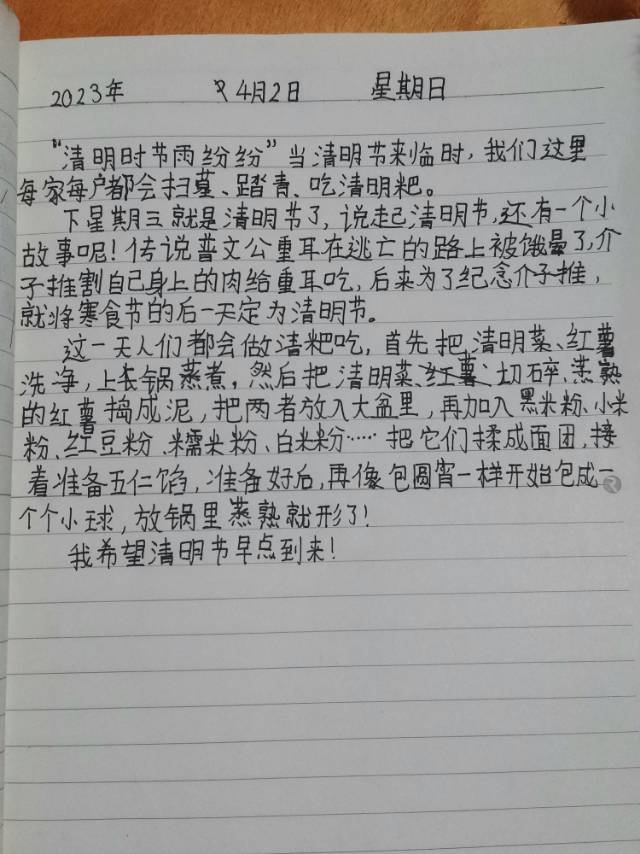 2023年 4月2日 星期日
“清明时节雨纷纷”当清明节来临时，我们这里
每家每户都会扫墓、踏青、吃清明粑。
下星期三就是清明节了，说起清明节，还有一个小
故事呢！传说晋文公重耳在逃亡的路上被饿晕了，介
子推割自己身上的肉给重耳吃，后来为了纪念介子推，
就将寒食节的后一天定为清明节。
这一天人们都会做清粑吃，首先把清明菜、红薯
洗净，上锅蒸煮，然后把清明菜、切碎、蒸熟
的红薯捣成泥，把两者放入大盆里，再加入黑米粉、小米
粉、红豆粉、糯米粉、白米粉……把它们揉成面团，接
着准备五仁馅，准备好后，再像包圆宵一样开始包成一
个个小球，放锅里蒸熟就形了！
我希望清明节早点到来！